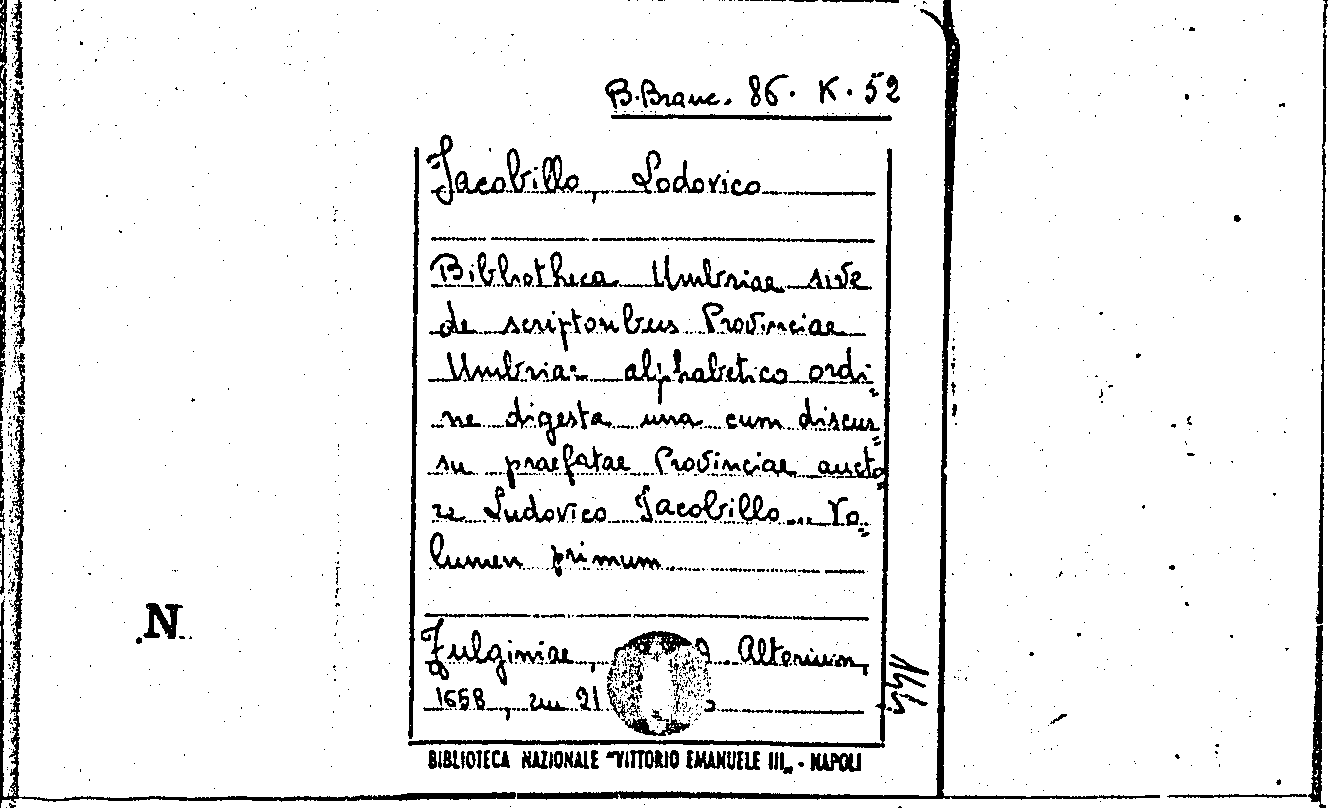 B. Branc. 86. K. 52
Jacobillo, Lodovico
Bibliotheca Umbriae sive
de scriptoribus Provinciae
Umbriae alphabetico ordi=
ne digesta una cum discur=
su praefatae Provinciae aucto=
re Ludovico Jacobillo... Vo=
lumen primum
N
Fulginiae, Alterium,
1658, in 21
BIBLIOTECA NAZIONALE "VITTORIO EMANUELE III„ - NAPOLI